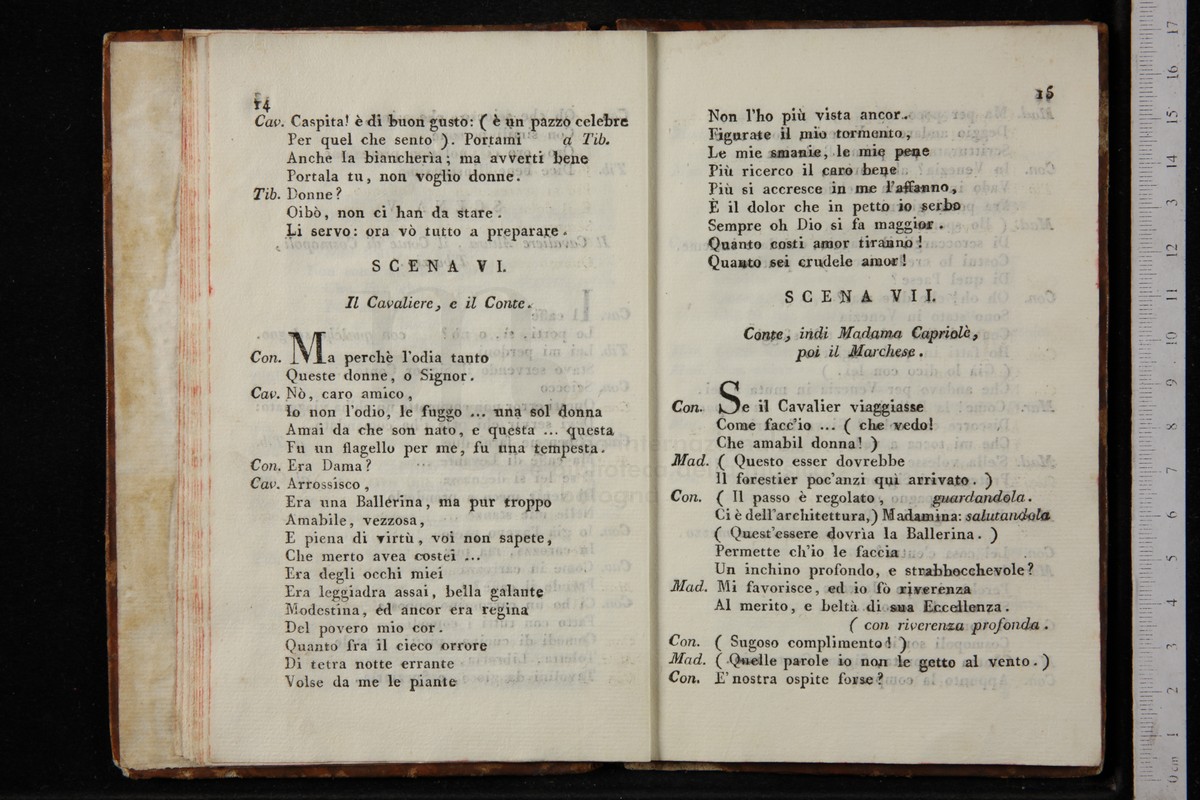 14
Cav. Caspita! è di buon gusto: ( è un pazzo celebre
Per quel che sento ). Portami a Tib.
Anche la biancherìa; ma avverti bene
Portala tu, non voglio donne.
Tib. Donne?
Oibò, non ci han da stare.
Li servo: ora vò tutto a preparare.
SCENA VI.
Il Cavaliere, e il Conte.
Con. Ma perchè l'odia tanto
Queste donne, o Signor.
Cav. Nò, caro amico,
Io non l'odio, le fuggo ... una sol donna
Amai da che son nato, e questa ... questa
Fu un flagello per me, fu una tempesta.
Con. Era Dama?
Cav. Arrossisco,
Era una Ballerina, ma pur troppo
Amabile, vezzosa,
E piena di virtù, voi non sapete,
Che merto avea costei ...
Era degli occhi miei
Era leggiadra assai, bella galante
Modestina, ed ancor era regina
Del povero mio cor.
Quanto fra il cieco orrore
Di tetra notte errante
Volse da me le piante
15
Non l'ho più vista ancor.
Figurate il mio tormento,
Le mie smanie, le mie pene
Più ricerco il caro bene
Più si accresce in me l'affanno,
È il dolor che in petto io serbo
Sempre oh Dio si fa maggior.
Quanto costi amor tiranno!
Quanto sei crudele amor!
SCENA VII.
Conte, indi Madama Capriolè,
poi il Marchese.
Con. Se il Cavalier viaggiasse
Come facc'io ... ( che vedo!
Che amabil donna! )
Mad. ( Questo esser dovrebbe
Il forestier poc'anzi qui arrivato. )
Con. ( Il passo è regolato, guardandola.
Ci è dell'architettura,) Madamina: salutandola
( Quest'essere dovrìa la Ballerina. )
Permette ch'io le faccia
Un inchino profondo, e strabbocchevole?
Mad. Mi favorisce, ed io fò riverenza
Al merito, e beltà di sua Eccellenza.
( con riverenza profonda.
Con. ( Sugoso complimento! )
Mad. ( Quelle parole io non le getto al vento. )
Con. E' nostra ospite forse?
0 cm 1 2 3 4 5 6 7 8 9 10 11 12 13 14 15 16 17